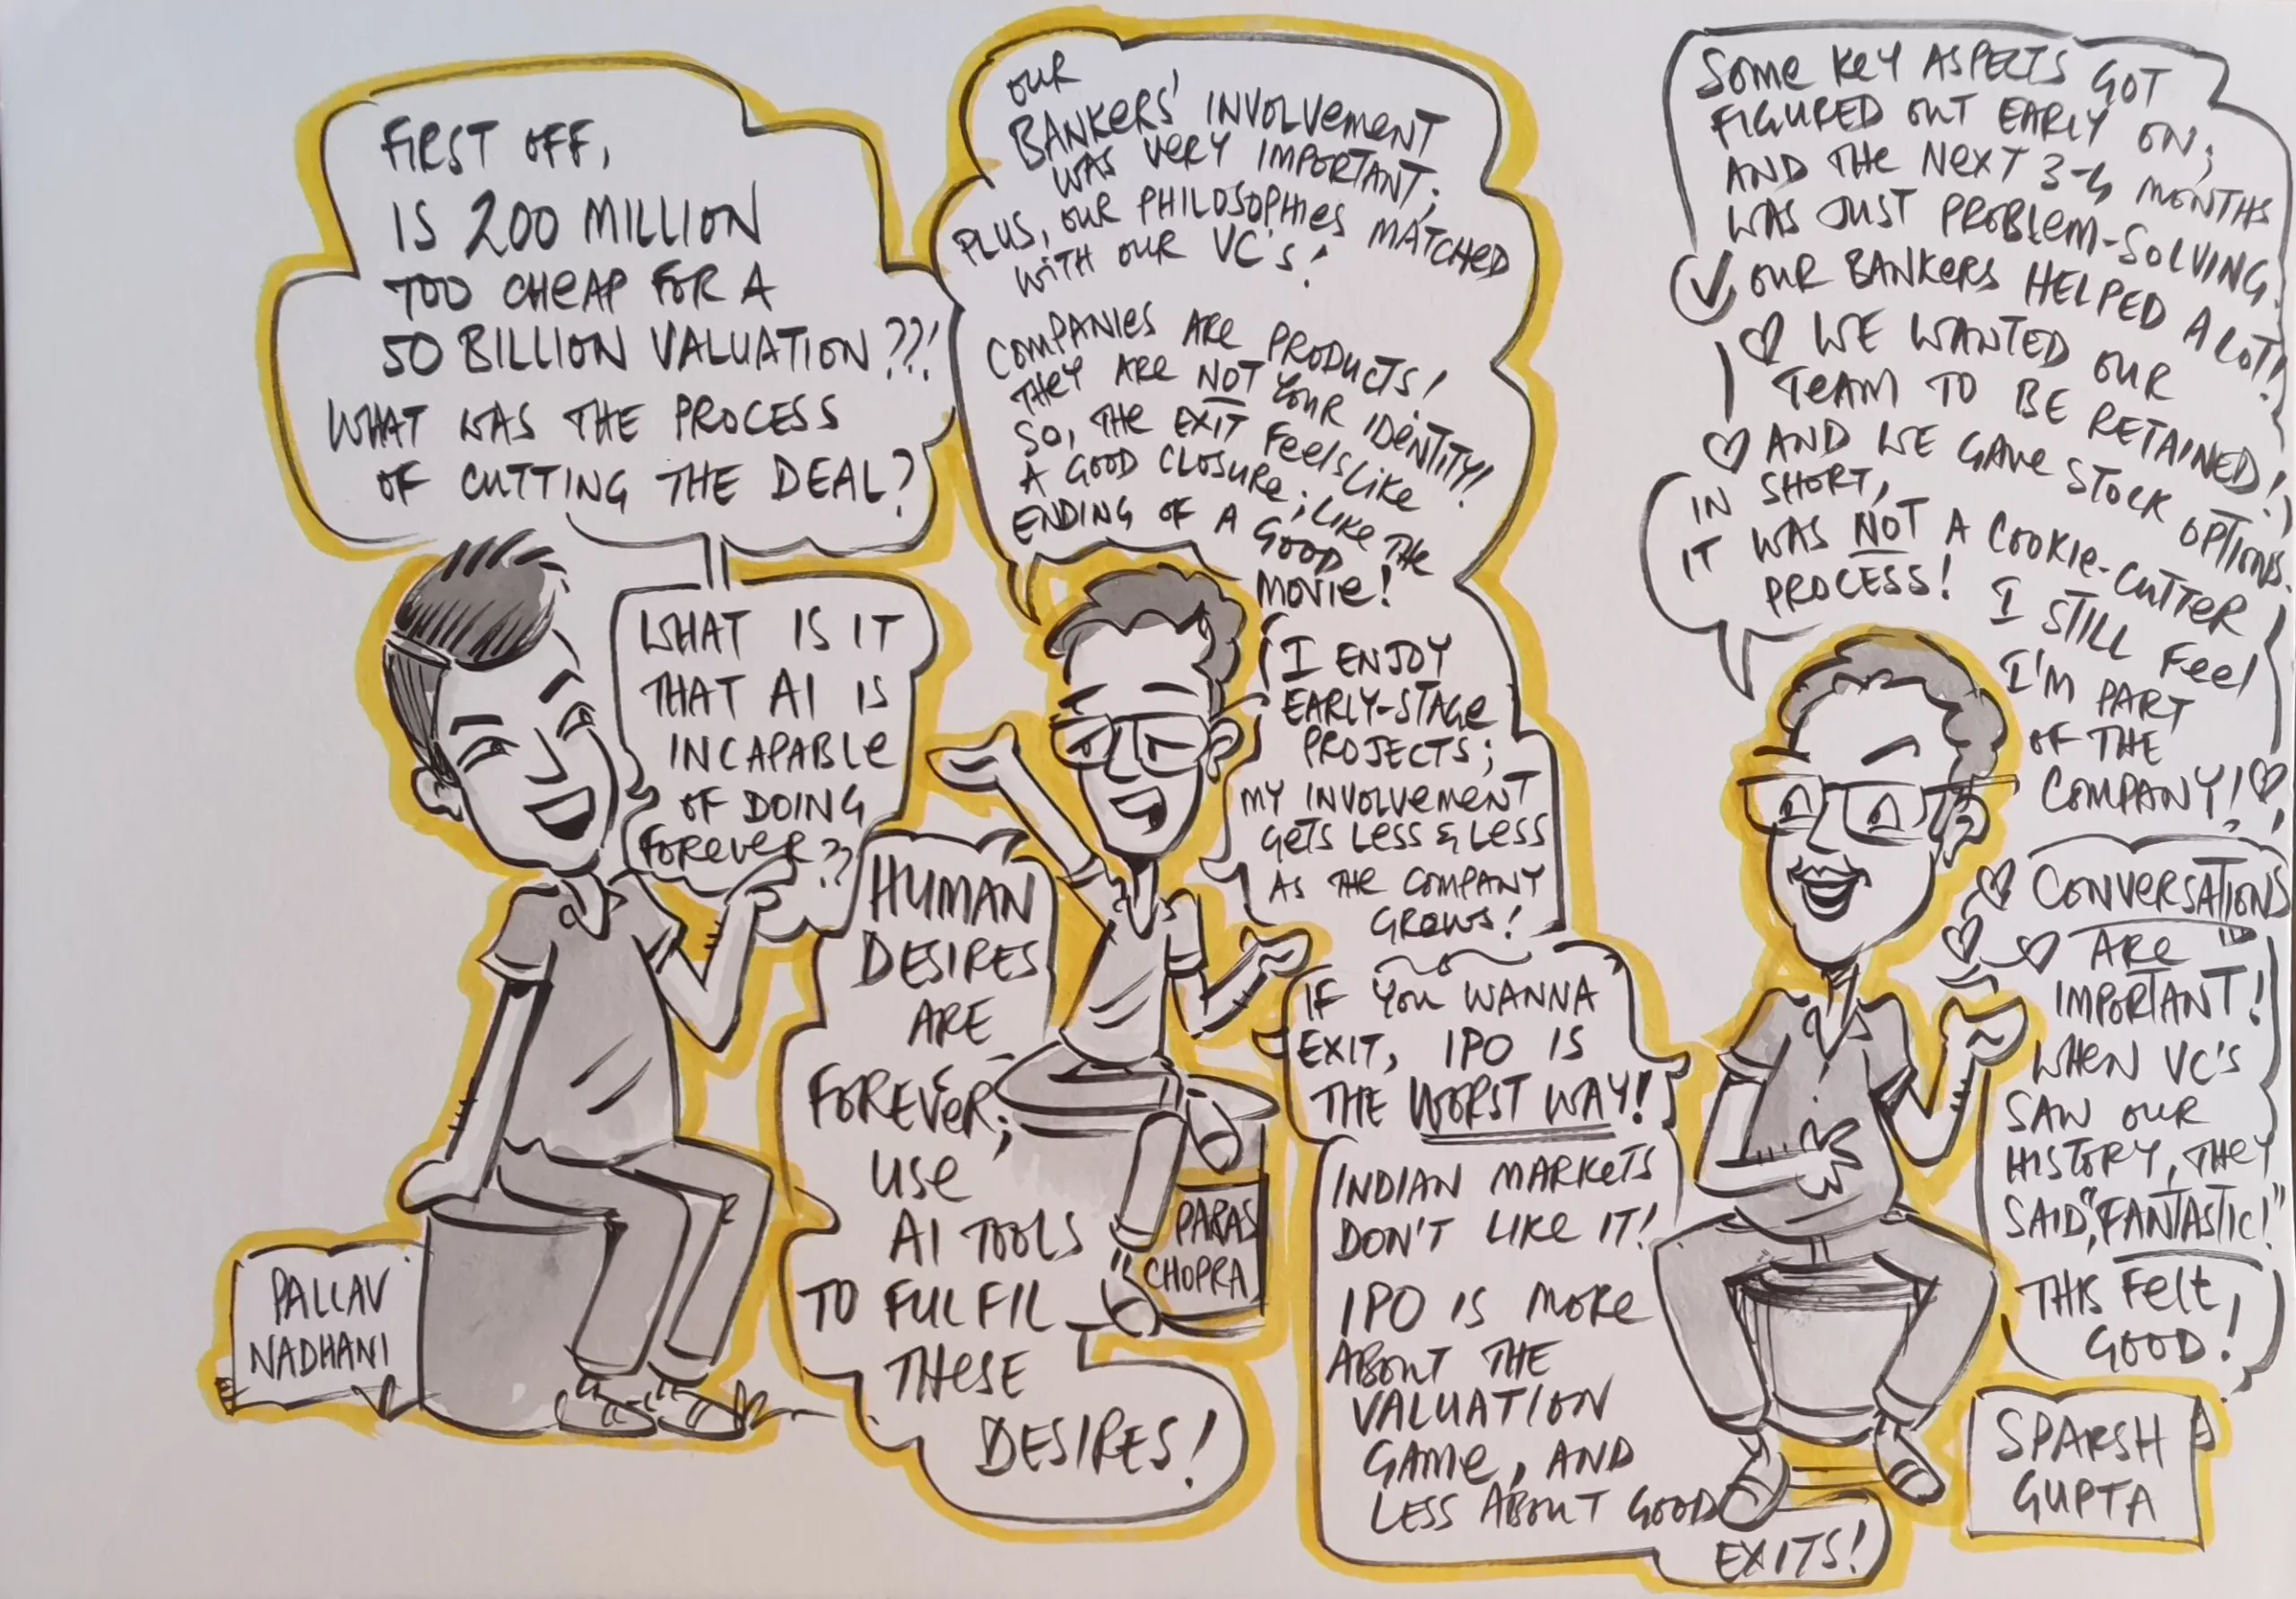 FIRST OFF,
IS 200 MILLION
TOO CHEAP FOR A
50 BILLION VALUATION??!
WHAT WAS THE PROCESS
OF CUTTING THE DEAL?
WHAT IS IT
THAT AI IS
INCAPABLE
OF DOING
FOREVER??
PALLAV
NADHANI
OUR
BANKERS' INVOLVEMENT
WAS VERY IMPORTANT;
PLUS, OUR PHILOSOPHIES MATCHED
WITH OUR VC'S!
COMPANIES ARE PRODUCTS!
THEY ARE NOT YOUR IDENTITY!
SO, THE EXIT FEELS LIKE
A GOOD CLOSURE; LIKE THE
ENDING OF A
GOOD
MOVIE!
I ENJOY
EARLY-STAGE
PROJECTS;
MY INVOLVEMENT
GETS LESS & LESS
AS THE COMPANY
GROWS!
HUMAN
DESIRES
ARE
FOREVER;
USE
AI TOOLS
TO FULFIL
THESE
DESIRES!
IF YOU WANNA
EXIT, IPO IS
THE WORST WAY!
INDIAN MARKETS
DON'T LIKE IT!
IPO IS MORE
ABOUT THE
VALUATION
GAME, AND
LESS ABOUT GOOD
EXITS!
PARAS
CHOPRA
SOME KEY ASPECTS GOT
FIGURED OUT EARLY ON;
AND THE NEXT 3-4 MONTHS
WAS JUST PROBLEM-SOLVING.
OUR BANKERS HELPED A LOT!
WE WANTED OUR
TEAM TO BE RETAINED!
AND WE GAVE STOCK OPTIONS.
IN SHORT,
IT WAS NOT A COOKIE-CUTTER
PROCESS!
I STILL FEEL
I'M PART
OF THE
COMPANY!
CONVERSATIONS
ARE
IMPORTANT!
WHEN VC'S
SAW OUR
HISTORY, THEY
SAID, "FANTASTIC!"
THIS FELT
GOOD!
SPARSH
GUPTA